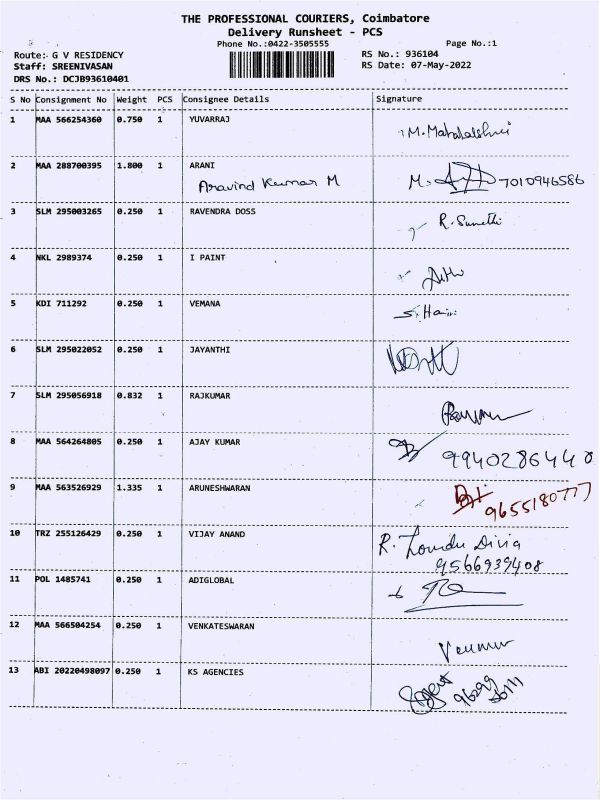 THE PROFESSIONAL COURIERS, Coimbatore
Delivery Runsheet - PCS
Phone No.:0422-3505555 Page No.:1
Route: G V RESIDENCY RS No.: 936104
Staff: SREENIVASAN RS Date: 07-May-2022
DRS No.: DCJB93610401
S No Consignment No Weight PCS Consignee Details Signature
1 MAA 566254360 0.750 1 YUVARRAJ
M. Mahalakshmi
2 MAA 288700395 1.800 1 ARANI
Aravind Kumar M M. 7010946586
3 SLM 295003265 0.250 1 RAVENDRA DOSS
R. Sumathi
4 NKL 2989374 0.250 1 I PAINT
5 KDI 711292 0.250 1 VEMANA
S. Hari
6 SLM 295022052 0.250 1 JAYANTHI
7 SLM 295056918 0.832 1 RAJKUMAR
8 MAA 564264805 0.250 1 AJAY KUMAR
9940286440
9 MAA 563526929 1.335 1 ARUNESHWARAN
9655180777
10 TRZ 255126429 0.250 1 VIJAY ANAND
R. Lourdu Divia
9566939408
11 POL 1485741 0.250 1 ADIGLOBAL
12 MAA 566504254 0.250 1 VENKATESWARAN
13 ABI 20220498097 0.250 1 KS AGENCIES